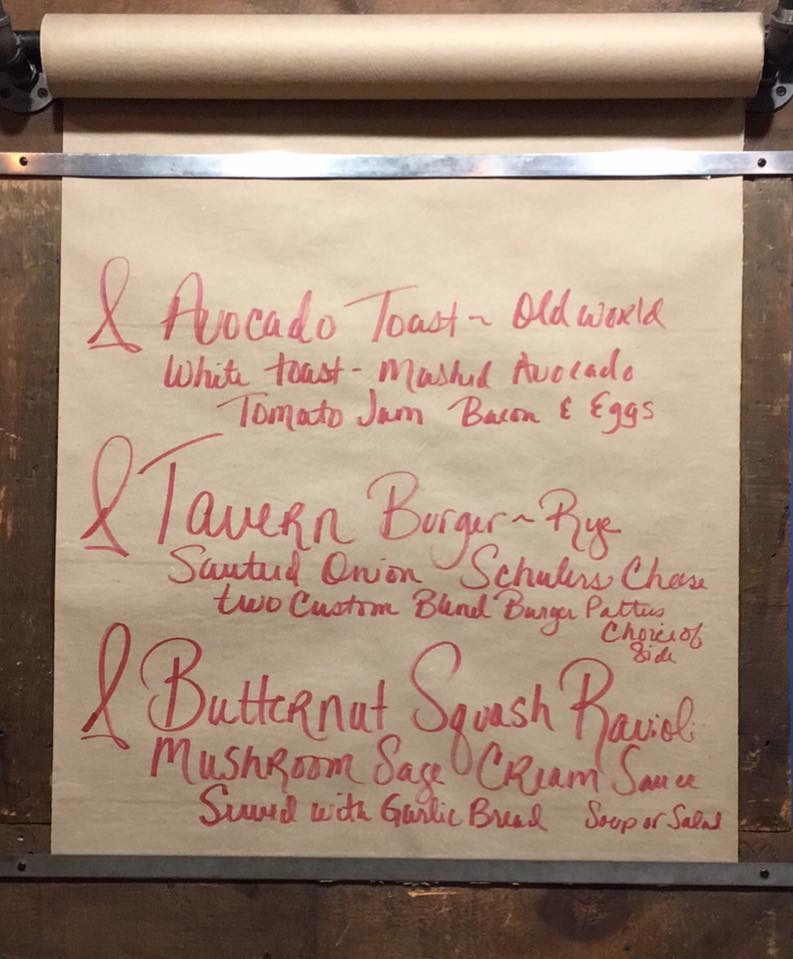 Avocado Toast ~ Old World
White toast - Mashed Avocado
Tomato Jam Bacon & Eggs
Tavern Burger ~ Rye
Sauteed Onion Schulers Cheese
two Custom Blend Burger Patties
Choice of
Side
Butternut Squash Ravioli
Mushroom Sage Cream Sauce
Served with Garlic Bread Soup or Salad